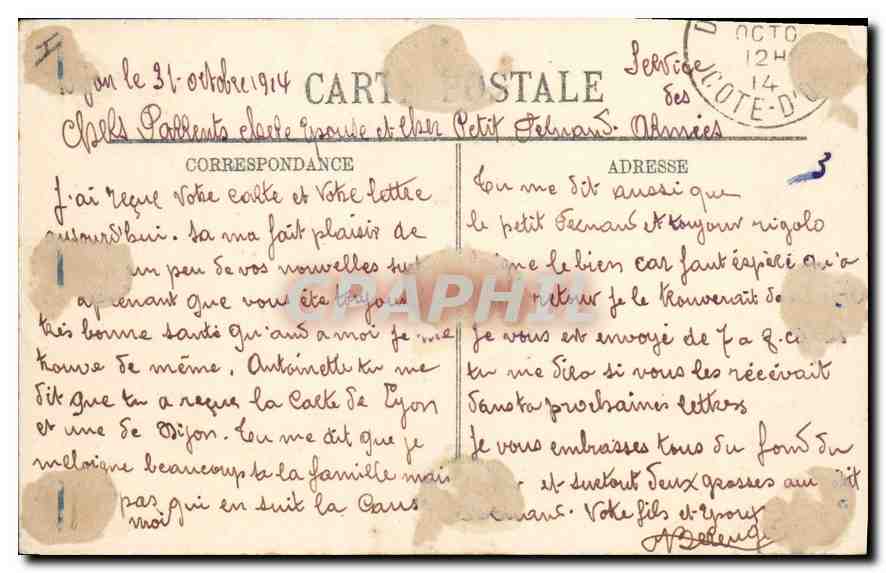 le 31 octobre 1914
CARTE POSTALE
Service
des
Armées
OCTO
12H
14
COTE-D'O
Chers Parrents chere Epouse et cher Petit Fernand.
CORRESPONDANCE
J'ai reçue votre carte et votre lettre
aujourd'hui. sa ma fait plaisir de
un peu de vos nouvelles sur
aprenant que vous éte toujous
très bonne santé qu'and a moi je me
trouve de même. Antoinette tu me
dit que tu a reçue la carte de Lyon
et une de Dijon. Tu me dit que je
méloigne beaucoup sa la famille mais
pas qui en suit la Caus
moi
ADRESSE
3
Tu me dit aussi que
le petit Fernand et toujour rigolo
le bien car faut éspéré qu'a
retour je le trouverait
Je vous est envoyé de 7 a 8.
tu me dira si vous les récévait
dans ta prochaines lettres
Je vous embrasses tous du fond du
et surtout deux grosses au
Fernand. Votre fils et Epoux
CPARAPHIL